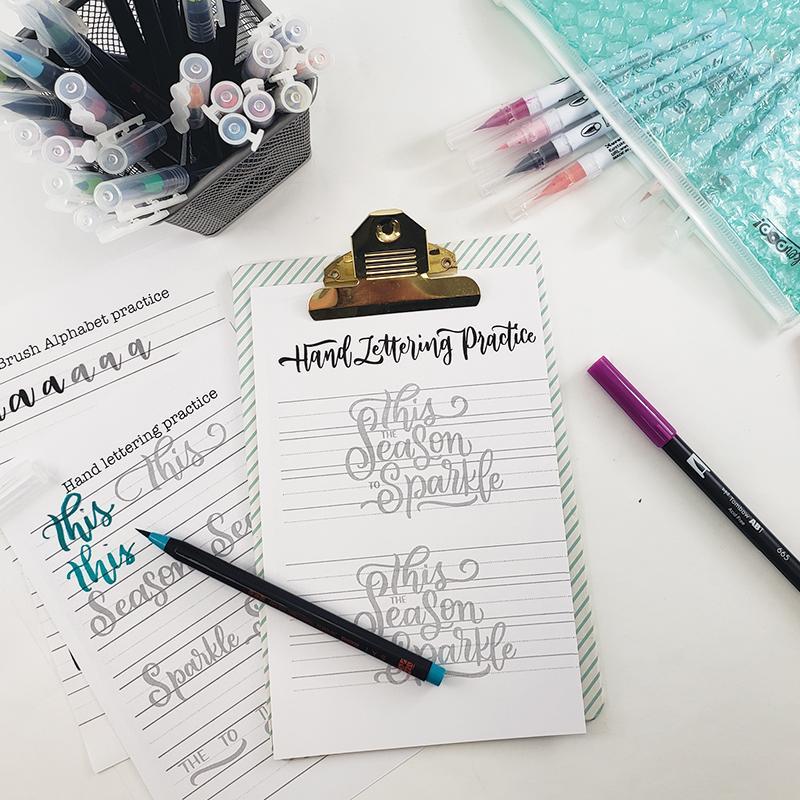 Hand Lettering Practice
This
THE
Season
TO
Sparkle
This
THE
Season
Sparkle
Brush Alphabet practice
a a a a a a
Hand lettering practice
This This
This
Season
Sparkle
THE TO
Tombow ABT
Acid Free
665